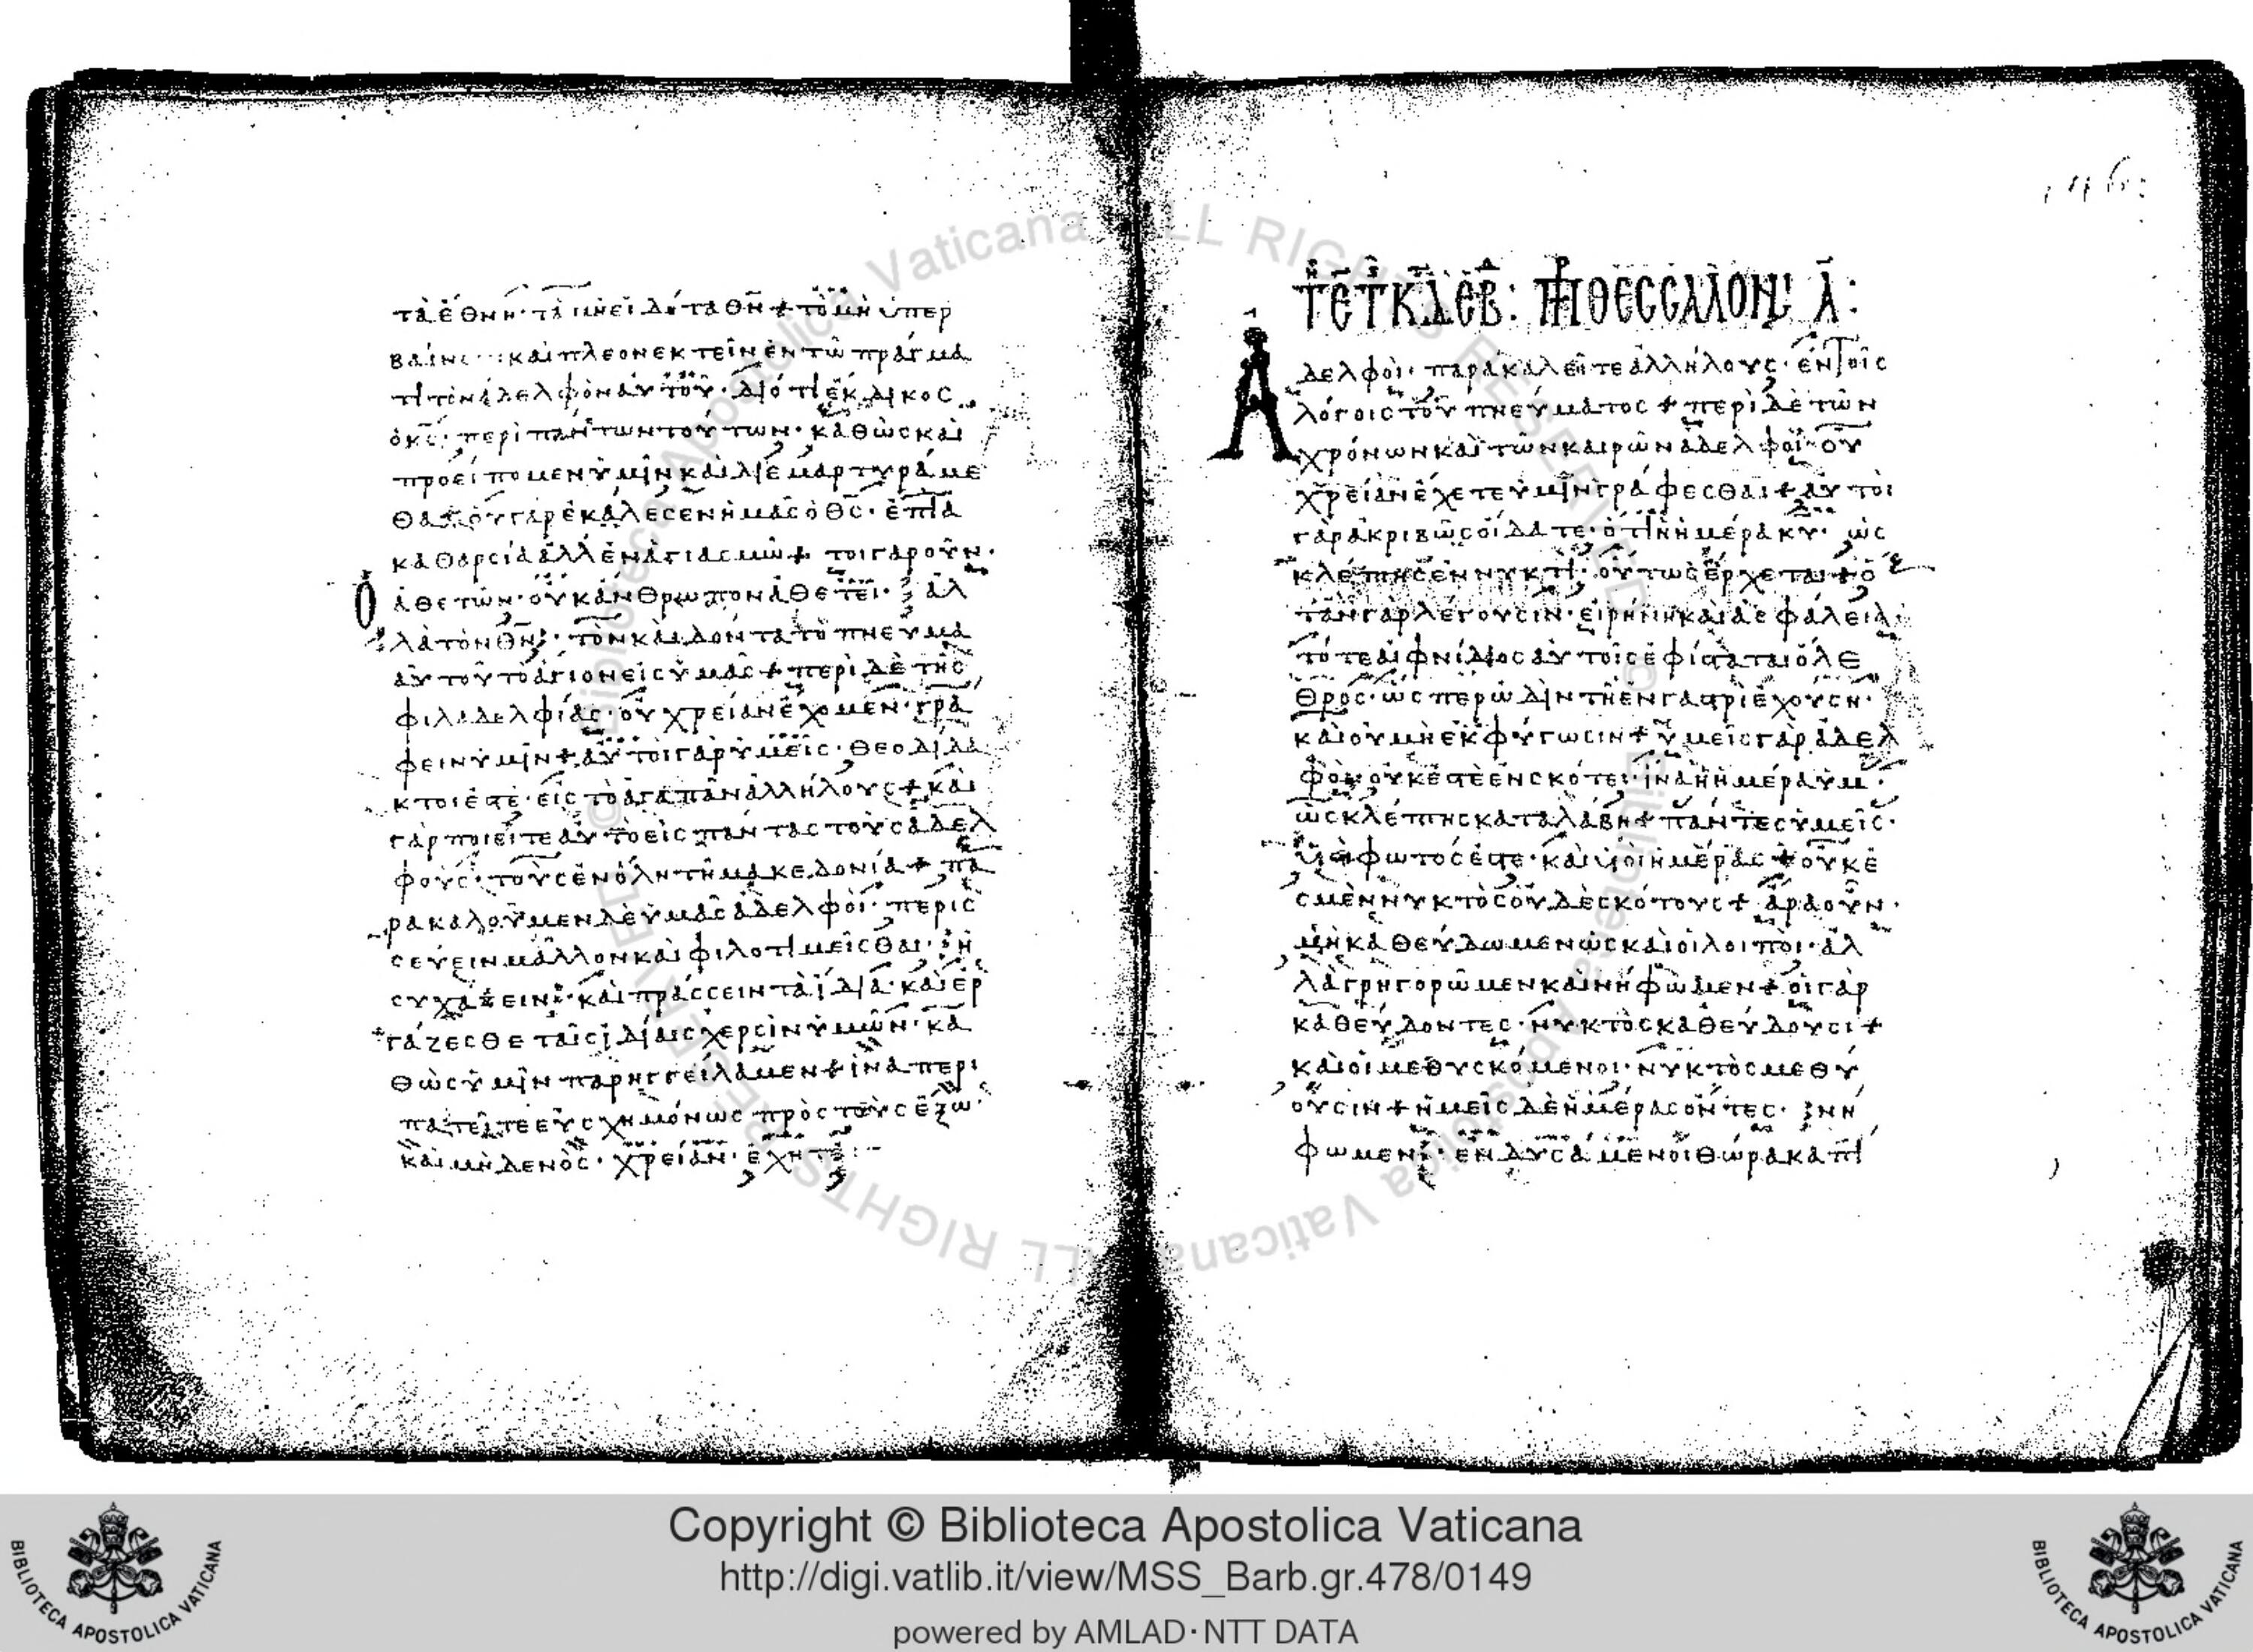 τὰ ἔθνη· τὰ μὴ εἰδότα θ̅ν̅ + τὸ μὴ ὑπερ
βαίνει· καὶ πλεονεκτεῖν ἐν τῶ πράγμα
τι τὸν ἀδελφὸν αὐτοῦ· διότι ἔκδικος
ὁ κ̅ς̅· περὶ πάντων τούτων· καθὼς καὶ
προείπομεν ὑμῖν καὶ διεμαρτυράμε
θα + οὐ γὰρ ἐκάλεσεν ἡμᾶς ὁ θ̅ς̅· ἐπὶ ἀ
καθαρσία ἀλλ ἐν ἁγιασμῶ + τοιγαροῦν·
Ὁ ἀθετῶν· οὐκ ἄνθρωπον ἀθετεῖ· ἀλ
λὰ τὸν θ̅ν̅· τὸν καὶ δόντα τὸ πνεῦμα
αὐτοῦ τὸ ἅγιον εἰς ὑμᾶς + περὶ δὲ τῆς
φιλαδελφίας· οὐ χρείαν ἔχομεν· γρά
φειν ὑμῖν + αὐτοὶ γὰρ ὑμεῖς· θεοδίδα
κτοι ἐστὲ· εἰς τὸ ἀγαπᾶν ἀλλήλους + καὶ
γὰρ ποιεῖτε αὐτὸ εἰς πάντας τοὺς ἀδελ
φοὺς· τοὺς ἐν ὅλη τῆ μακεδονία + πα
ρακαλοῦμεν δὲ ὑμᾶς ἀδελφοὶ· περισ
σεύειν μᾶλλον καὶ φιλοτιμεῖσθαι· ἡ
συχάζειν· καὶ πράσσειν τὰ ἴδια· καὶ ἐρ
γάζεσθε ταῖς ἰδίαις χερσὶν ὑμῶν· κα
θὼς ὑμῖν παρηγγείλαμεν + ἵνα περι
πατεῖτε εὐσχημόνως πρὸς τοὺς ἔξω·
καὶ μηδενὸς· χρείαν· ἔχητε:-
146
ΤΕΤ Κ̅Δ̅ ΕΒ: ΠΡ ΘΕΣΣΑΛΟΝΙ Α̅:
Ἀδελφοὶ· παρακαλεῖτε ἀλλήλους· ἐν τοῖς
λόγοις τοῦ πνεύματος + περὶ δὲ τῶν
χρόνων καὶ τῶν καιρῶν ἀδελφοὶ· οὐ
χρείαν ἔχετε ὑμῖν γράφεσθαι + αὐτοὶ
γὰρ ἀκριβῶς οἴδατε· ὅτι ἡ ἡμέρα κ̅υ̅· ὡς
κλέπτης ἐν νυκτὶ· οὕτως ἔρχεται + ὅ
ταν γὰρ λέγουσιν· εἰρήνη καὶ ἀσφάλεια·
τότε αἰφνίδιος αὐτοῖς ἐφίσταται ὄλε
θρος· ὡς περ ὠδὶν τῆ ἐν γαστρὶ ἐχούση·
καὶ οὐ μὴ ἐκφύγωσιν + ὑμεῖς γὰρ ἀδελ
φοὶ οὐκ ἐστὲ ἐν σκότει· ἵνα ἡ ἡμέρα ὑμ·
ὡς κλέπτης καταλάβη + πάντες ὑμεῖς·
υἱοὶ φωτός ἐστε· καὶ υἱοὶ ἡμέρας + οὐκ ἐ
σμὲν νυκτὸς οὐδὲ σκότους + ἄρα οὖν·
μὴ καθεύδωμεν ὡς καὶ οἱ λοιποὶ· ἀλ
λὰ γρηγορῶμεν καὶ νήφωμεν + οἱ γὰρ
καθεύδοντες· νυκτὸς καθεύδουσι +
καὶ οἱ μεθυσκόμενοι· νυκτὸς μεθύ
ουσιν + ἡμεῖς δὲ ἡμέρας ὄντες· νή
φωμεν· ἐνδυσάμενοι θώρακα πί
Copyright © Biblioteca Apostolica Vaticana
http://digi.vatlib.it/view/MSS_Barb.gr.478/0149
powered by AMLAD·NTT DATA
BIBLIOTECA APOSTOLICA VATICANA
BIBLIOTECA APOSTOLICA VATICANA